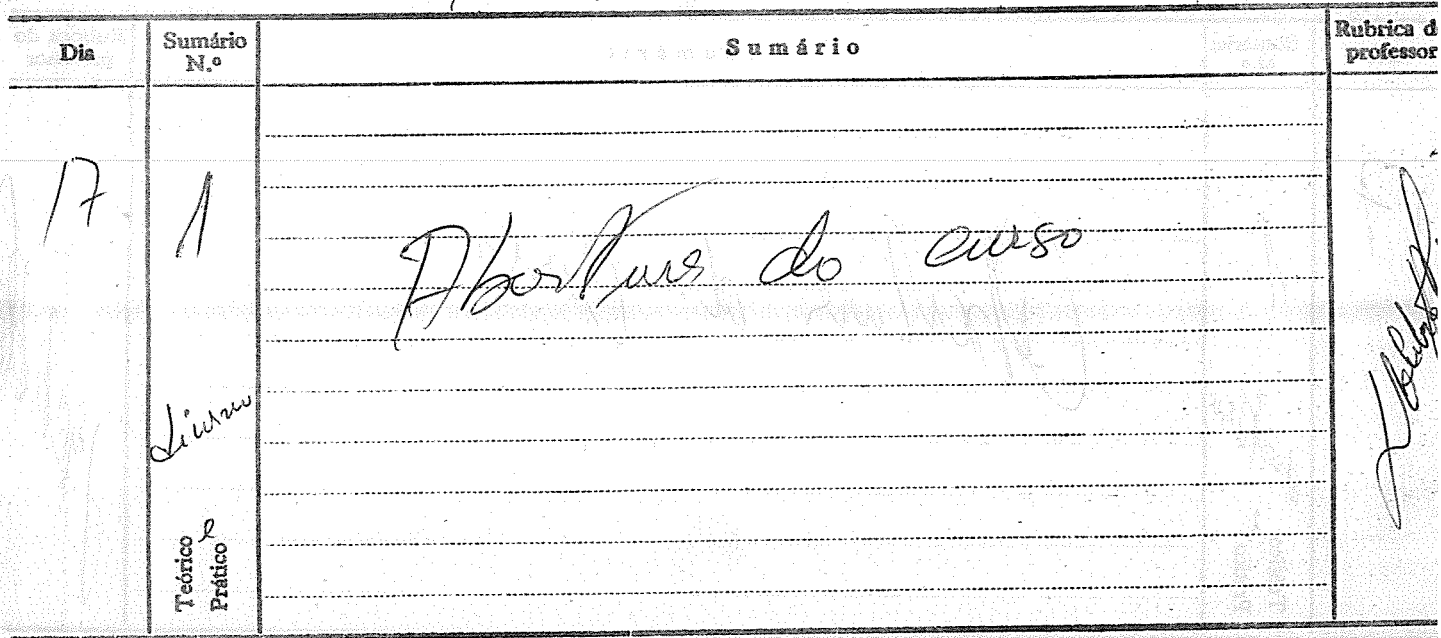 Dia
Sumário N.º
Sumário
Rubrica d
professor
17
1
Abertura do curso
Diurno
Teórico e
Prático